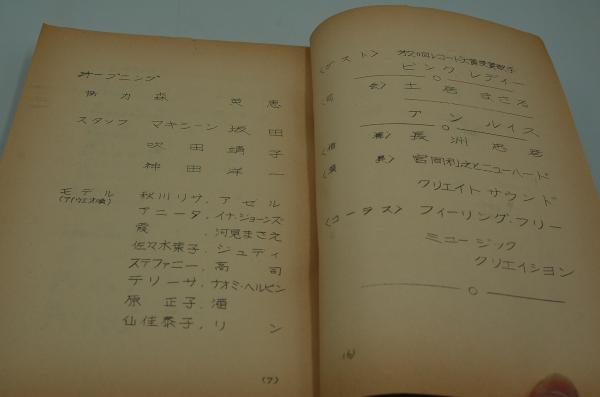 オープニング
協力 森 英恵
スタッフ マキシーン坂田
吹田靖子
神田洋一
モデル 秋川リサ、アゼル
(アイウエオ順) アニータ、イナ・ジョーンズ
霞 、河見まさえ
佐々木茱子、ジュディ
ステファニー、高 司
テリーサ、ナオミ・ヘルビン
原 正子、滝
仙佳泰子、リン
(7)
〈ゲスト〉 オ20回レコード大賞受賞歌手
ピンクレディー
(司 会) 土居まさる
アン ルイス
長洲忠彦
(演 奏) 宮間利之とニューハード
クリエイト サウンド
〈コーラス〉 フィーリング・フリー
ミュージック
クリエイション
(6)